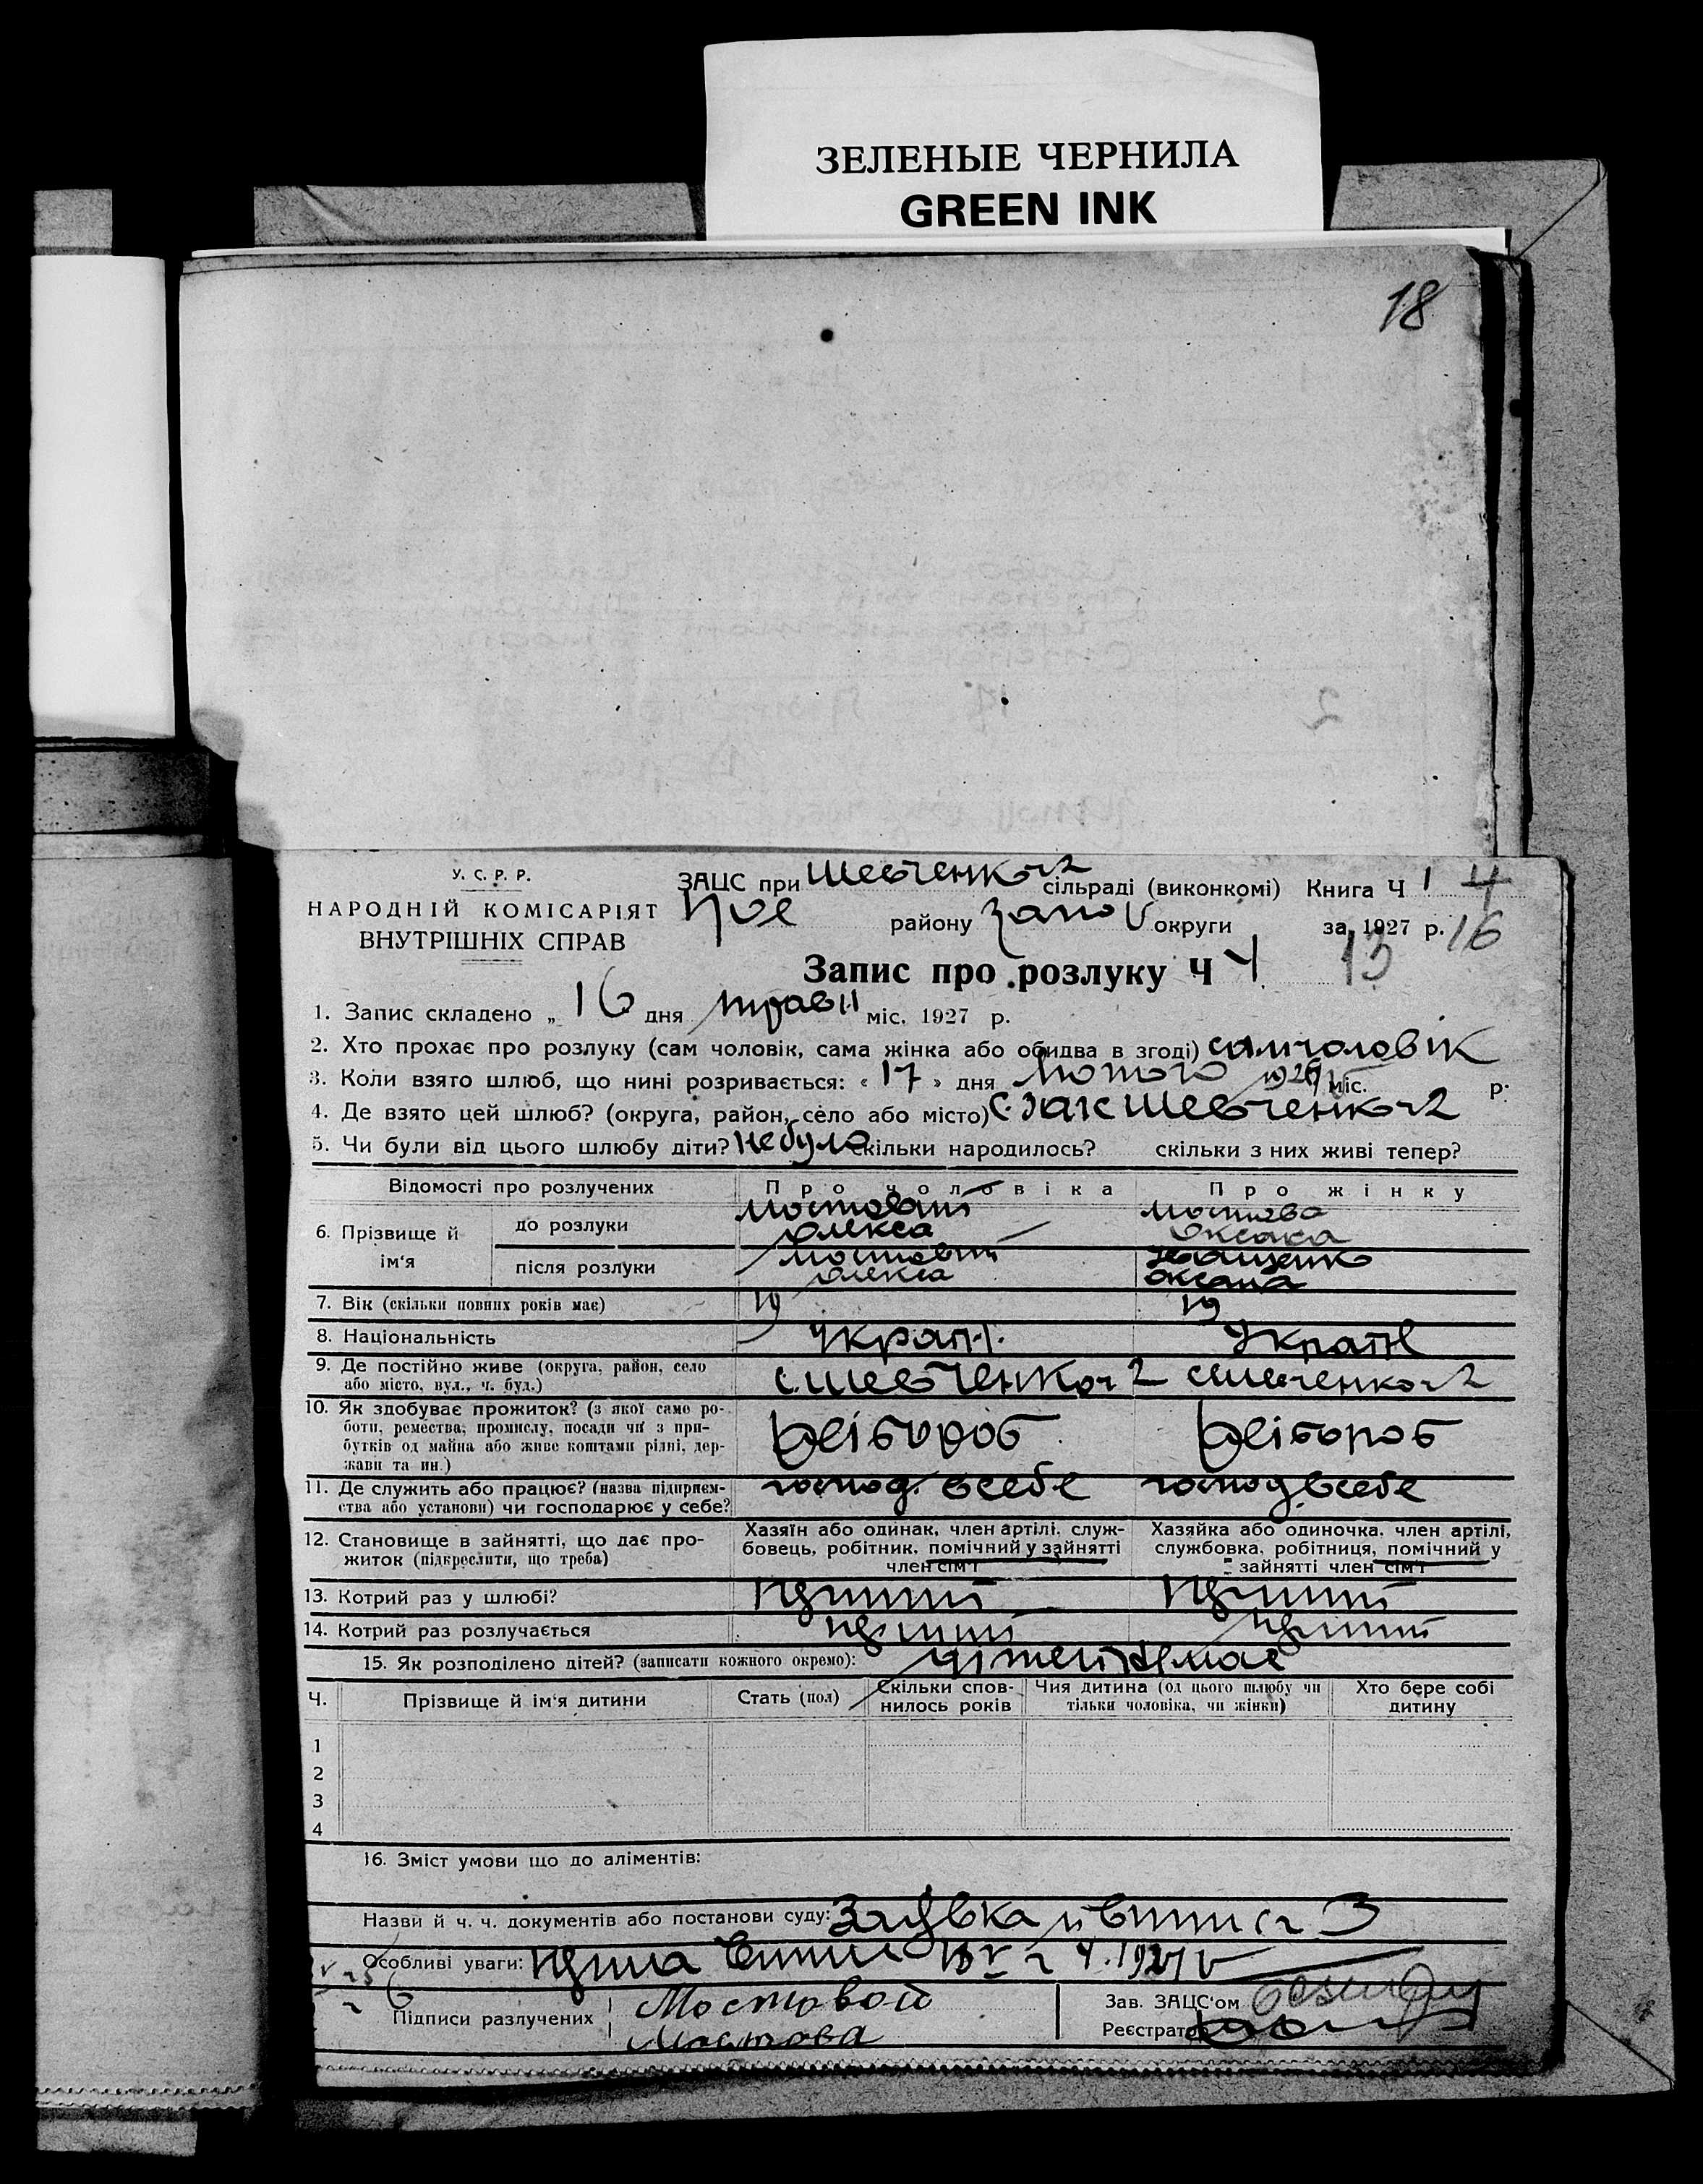 ЗЕЛЕНЫЕ ЧЕРНИЛА
GREEN INK
18
У. С. Р. Р.
НАРОДНІЙ КОМІСАРІЯТ
ВНУТРІШНІХ СПРАВ
ЗАЦС при Шевченков 2 сільраді (виконкомі) Книга Ч 1 4
району Запо округи за 1927 р. 16
Запис про розлуку Ч 4 13
1. Запис складено „ 16 дня травн міс. 1927 р.
2. Хто прохає про розлуку (сам чоловік, сама жінка або обидва в згоді) сам чоловік
3. Коли взято шлюб, що нині розривається: « 17 » дня лютого міс. р.
4. Де взято цей шлюб? (округа, район, село або місто) с. Загс Шевченков 2
5. Чи були від цього шлюбу діти? небуло скільки народилось? скільки з них живі тепер?
Відомості про розлучених Про чоловіка Про жінку
6. Прізвище й ім'я до розлуки Мостовий Олекса Мостова Оксана
після розлуки Мостовий Олекса Іващенко Оксана
7. Вік (скільки повних років має) 19 19
8. Національність Україн. Україн
9. Де постійно живе (округа, район, село
або місто, вул., ч. буд.) с. Шевченков 2 с Шевченков 2
10. Як здобуває прожиток? (з якої саме ро-
боти, ремества, промислу, посади чи з при-
бутків од майна або живе коштами рідні, дер-
жави та ин.) Хлібороб Хлібороб
11. Де служить або працює? (назва підприєм-
ства або установи) чи господарює у себе? господ. всебе господ всебе
12. Становище в зайнятті, що дає про-
житок (підкреслити, що треба)
Хазяїн або одинак, член артілі, служ-
бовець, робітник, помічний у зайнятті
член сім'ї
Хазяйка або одиночка, член артілі,
службовка, робітниця, помічний у
зайнятті член сім'ї
13. Котрий раз у шлюбі? перший перший
14. Котрий раз розлучається перший перший
15. Як розподілено дітей? (записати кожного окремо): дітей немає
Ч. Прізвище й ім'я дитини Стать (пол) Скільки спов-
нилось років Чия дитина (од цього шлюбу чи
тільки чоловіка, чи жінки) Хто бере собі
дитину
1
2
3
4
16. Зміст умови що до аліментів:
Назви й ч. ч. документів або постанови суду: Заявка
Особливі уваги:
Підписи разлучених Мостовой
Мостова
Зав. ЗАЦС'ом
Реєстратор